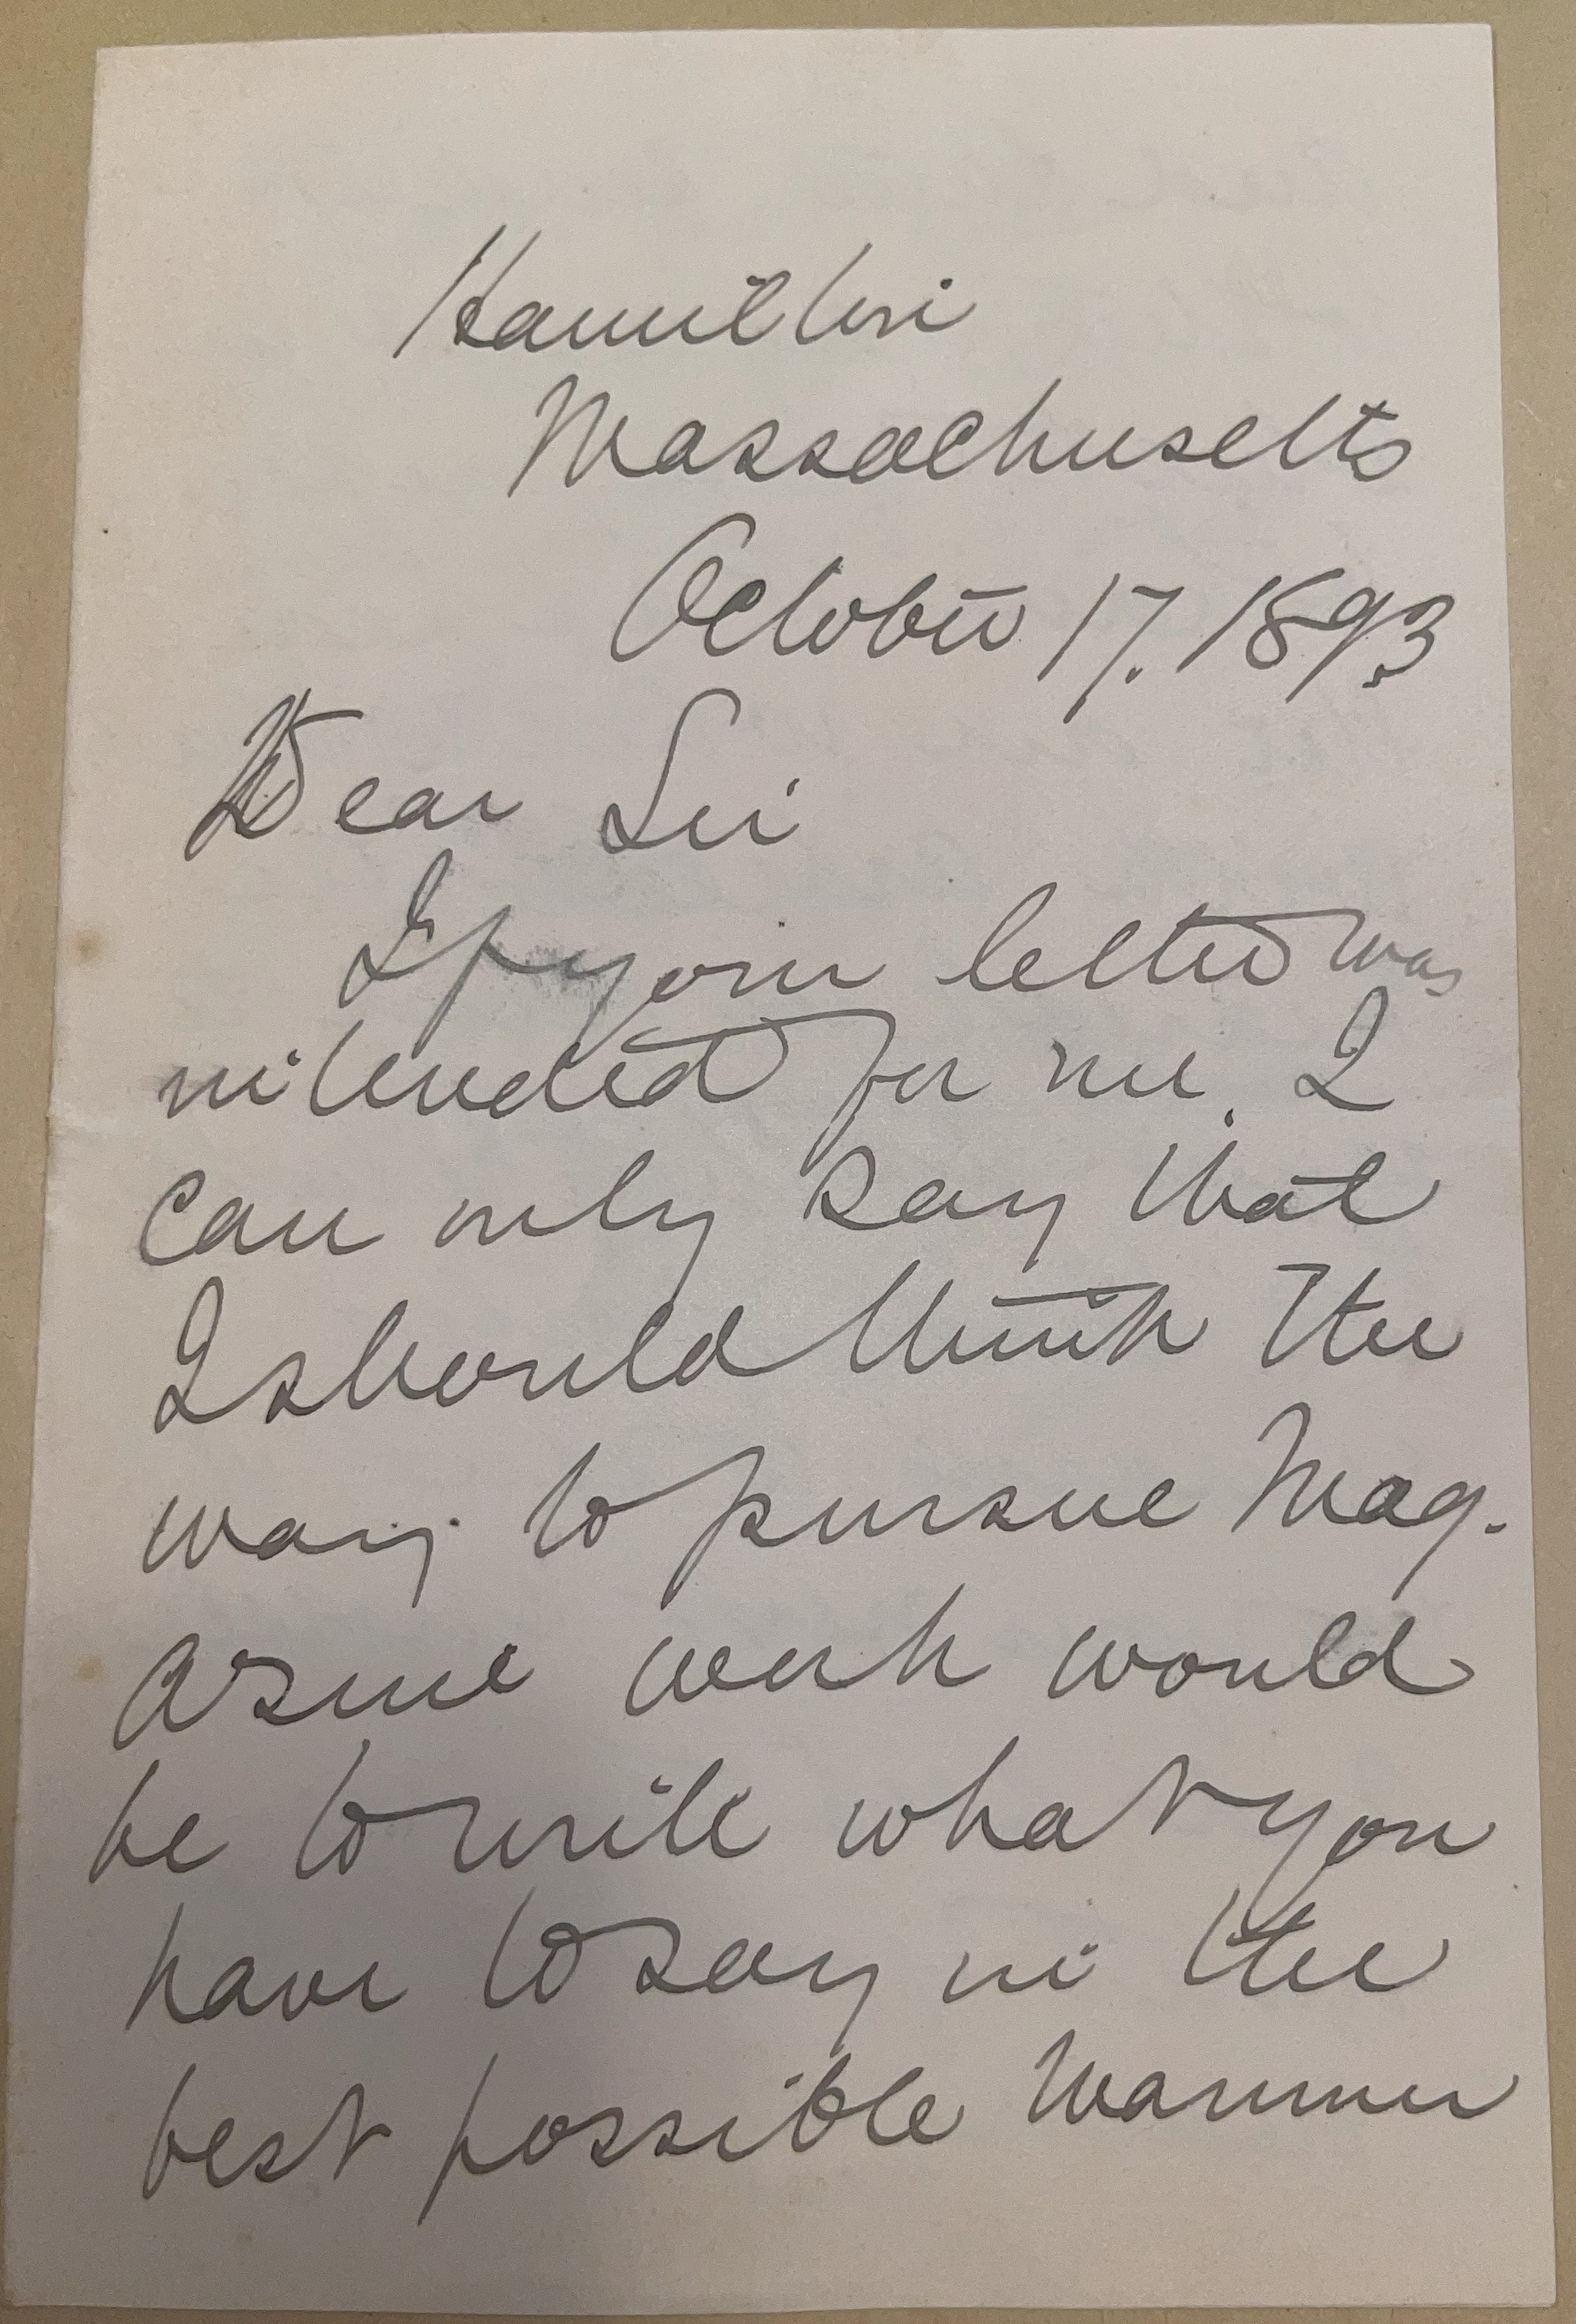 Hamilton
Massachusetts
October 17. 1893
Dear Sir
If your letter was
intended for me, I
can only say that
I should think the
way to pursue Mag-
azine work would
be to write what you
have to say in the
best possible manner